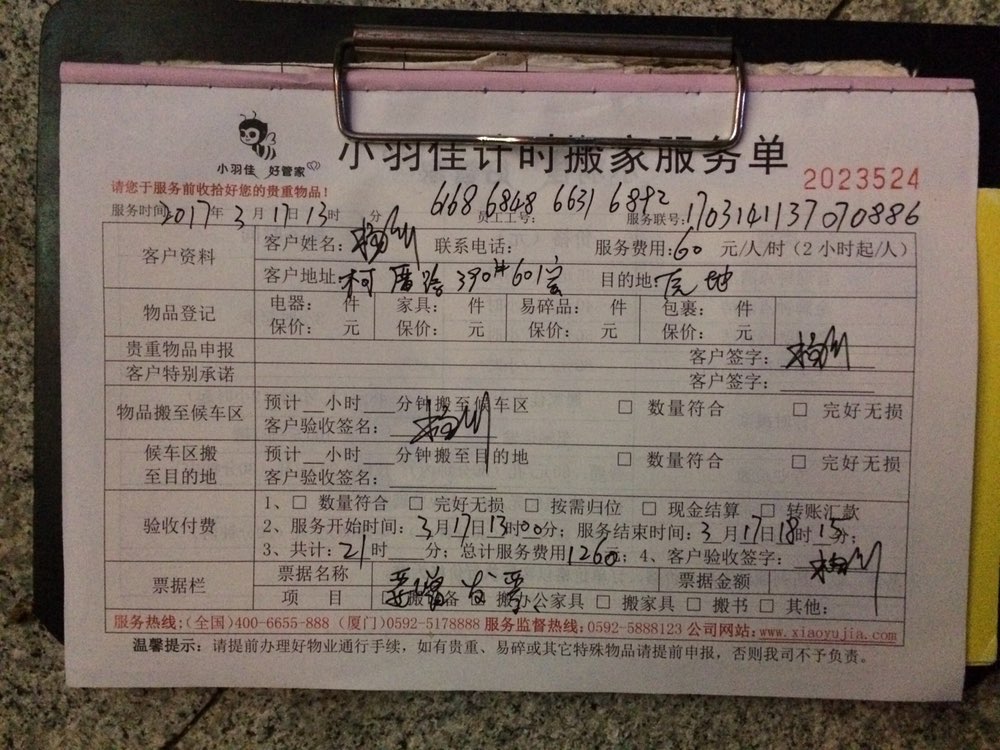 小羽佳 好管家
小羽佳计时搬家服务单
2023524
请您于服务前收拾好您的贵重物品！
6168 6848 6631 6892
服务时间 2017年 3月17日13时 分 员工工号： 服务联号：1703141137070886
客户资料 客户姓名： 联系电话： 服务费用：60 元/人/时（2小时起/人）
客户地址：柯厝路390#601室 目的地：原地
物品登记 电器： 件 家具： 件 易碎品： 件 包裹： 件
保价： 元 保价： 元 保价： 元 保价： 元
贵重物品申报 客户签字：
客户特别承诺 客户签字：
物品搬至候车区 预计 小时 分钟搬至候车区 □ 数量符合 □ 完好无损
客户验收签名：
候车区搬至目的地 预计 小时 分钟搬至目的地 □ 数量符合 □ 完好无损
客户验收签名：
验收付费 1、□ 数量符合 □ 完好无损 □ 按需归位 □ 现金结算 □ 转账汇款
2、服务开始时间：3月17日13时00分；服务结束时间：3月17日18时15分；
3、共计：21时 分；总计服务费用1260元；4、客户验收签字：
票据栏 票据名称 票据金额
项 目 □ 搬设备 □ 搬办公家具 □ 搬家具 □ 搬书 □ 其他：
服务热线：（全国）400-6655-888 （厦门）0592-5178888 服务监督热线：0592-5888123 公司网站：www.xiaoyujia.com
温馨提示：请提前办理好物业通行手续，如有贵重、易碎或其它特殊物品请提前申报，否则我司不予负责。